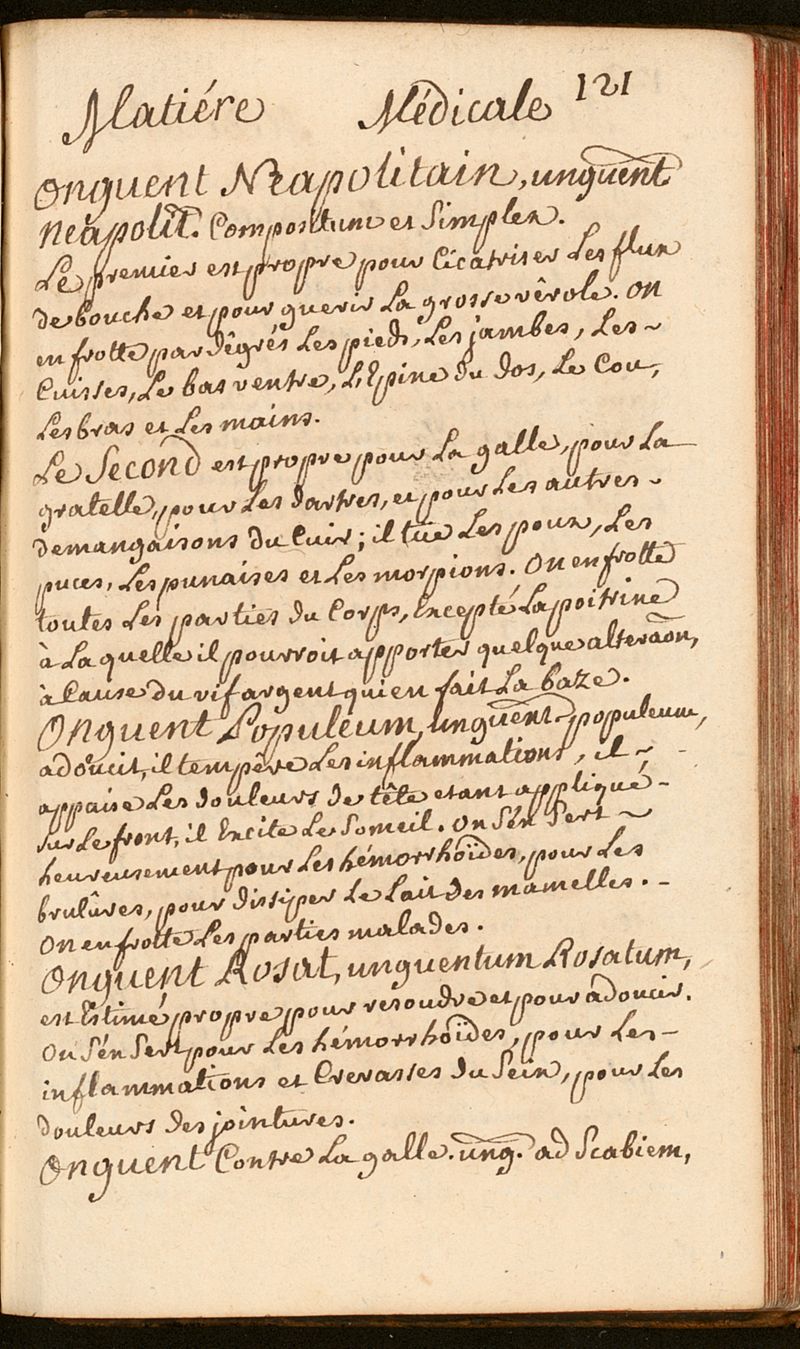 Matiére Médicale 121
Onguent Neapolitain, unguent
neapolit. Compositum et Simplex.
Le premier est propre pour Cicatriser Les flux
de bouche et pour guerir La grosse vêrole. On
en frotte par dêgrés Les pieds, Les jambes, Les~
Cuisses, Le bas ventre, L'Epine du dos, Le Cou,
Les bras et Les mains.
Le Second est propre pour La galle, pour La
gratelle, pour Les dartres, et pour Les autres~
demangaisons du Cuir; il tüe Les poux, Les
puces, Les punaises et Les morpions. On en frotte
toutes Les parties du Corps, Excepté La poitrine
à La quelle il pourroit apporter quelque alteraõn,
à Cause du vif argent qui en fait La baze.
Onguent Populeum, unguent populeum,
adoucit, il tempêre Les inflammations, il~
appaise Les douleurs de tête etant appliqué-
sur Le front, il Excite Le Someil. On s'én Sert~
heureusement pour Les hémorrhoïdes, pour Les
brulûres, pour dissiper Le Lait des mamelles.-
On en frotte Les parties malades.
Onguent Rosat, unguentum Rosatum,
est Estimé propre pour resoudre et pour adoucir.
On s'én Sert pour Les hémorrhoïdes, pour Les-
inflammations et Crevasses du Sein, pour Les
douleurs des jointures.
Onguent Contre La galle. ung. ad Scabiem,